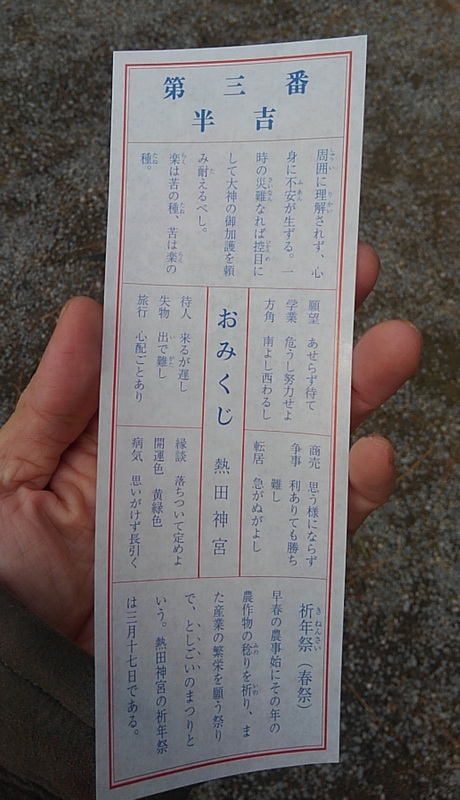 第三番
半吉
周囲に理解されず、心
身に不安が生ずる。一
時の災難なれば控目に
して大神の御加護を頼
み耐えるべし。
楽は苦の種、苦は楽の
種。
願望 あせらず待て
学業 危うし努力せよ
方角 南よし西わるし
おみくじ 熱田神宮
待人 来るが遅し
失物 出で難し
旅行 心配ごとあり
商売 思う様にならず
争事 利ありても勝ち
難し
転居 急がぬがよし
縁談 落ちついて定めよ
開運色 黄緑色
病気 思いがけず長引く
祈年祭(春祭)
早春の農事始にその年の
農作物の稔りを祈り、ま
た産業の繁栄を願う祭り
で、としごいのまつりと
いう。熱田神宮の祈年祭
は三月十七日である。